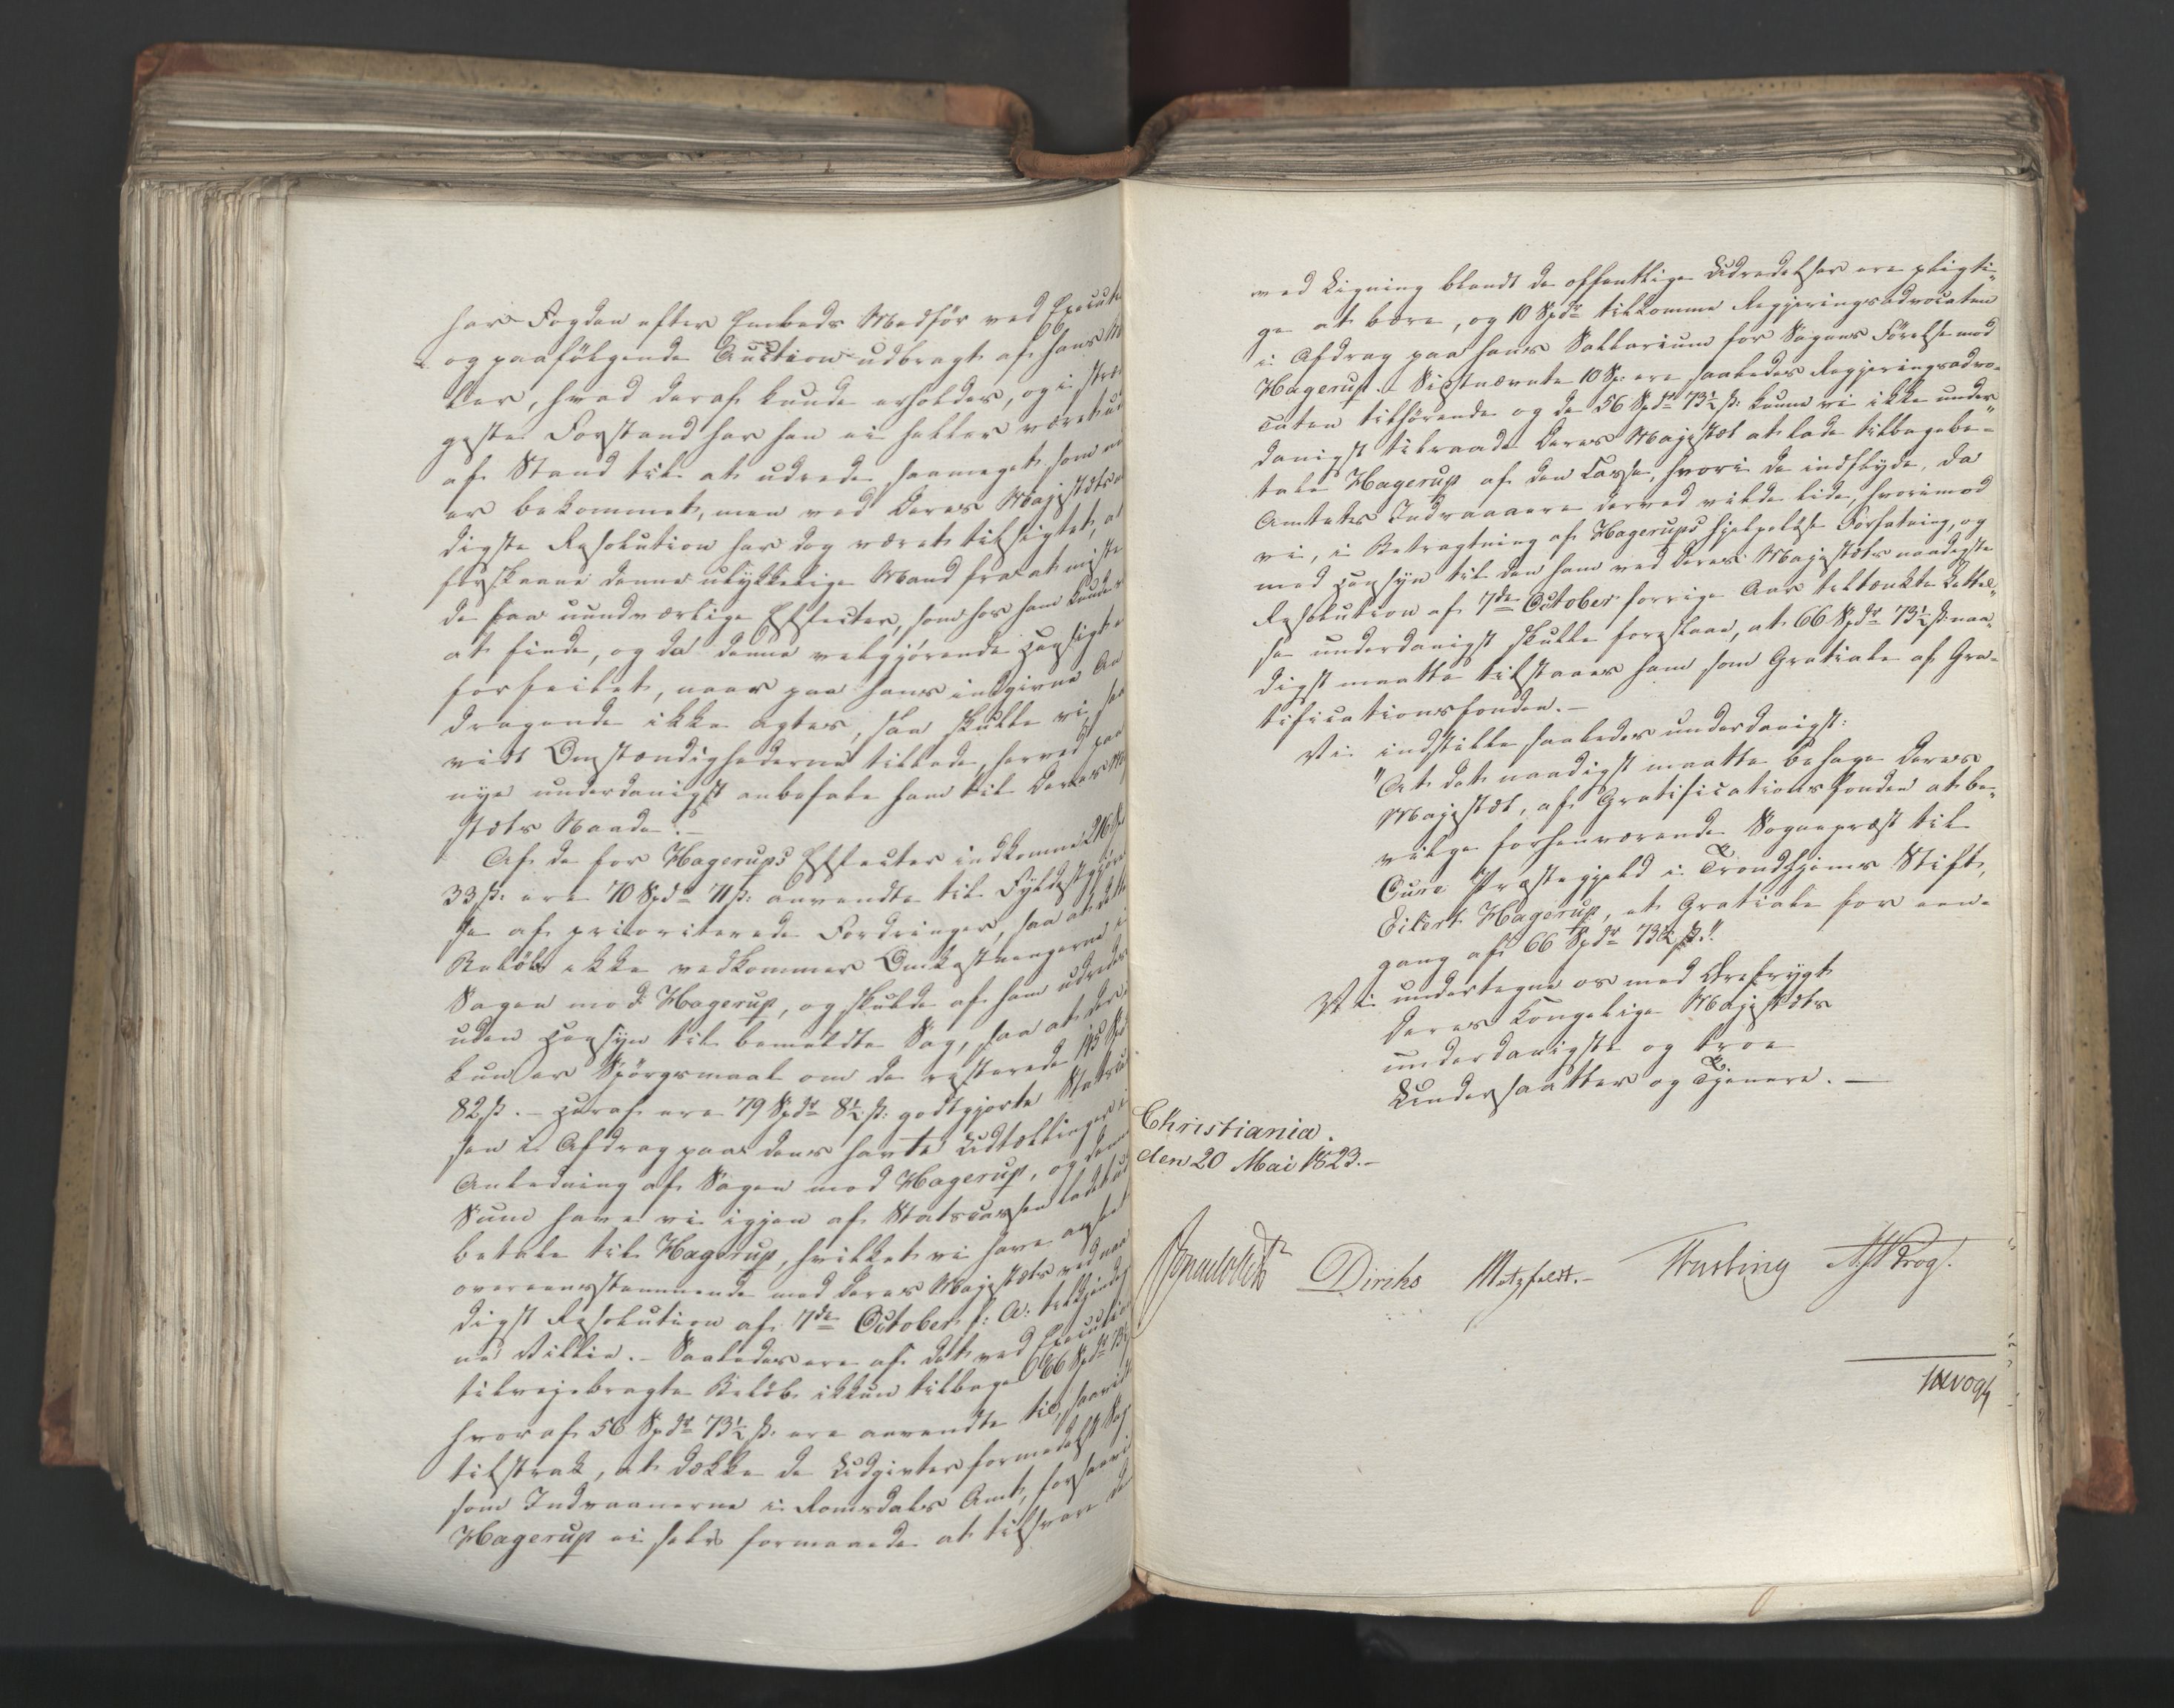 har Fogden efter Embeds Medfør ved Execut
og paafølgende Auction udbragt af hans M
ler, hvad deraf kunde erholdes, og i stræn
geste Forstand har han ei heller været ud
af Stand til at udrede saameget, som nu
er bekommet, men ved Deres Majestæts
digste Resolution har dog været tilsigtet, at
forskaane denne ulykkelige Mand fra at miste
de faa uundværlige Effecter, som hos ham kunde v
at finde, og da denne velgjørende Hensigt e
forfeilet, naar paa hans indgivne An
dragende ikke agtes, saa skulle vi, saa
vidt Omstændighederne tillade, herved paa
nye underdanigst anbefale ham til Deres Maj
stæts Naade.-
Af de for Hagerups Effecter indkomne 216 Spd
33 ß. ere 70 Spdr 71 ß. anvendte til Fyldestgjørel
se af prioriterede Fordringer, saa at dette
Beløb ikke vedkommer Omkostningerne i
Sagen mod Hagerup, og skulde af ham udredes
uden Hensyn til bemeldte Sag, saa at der
kun er Spørgsmaal om de resterede 145 Spd
82 ß. - Heraf ere 79 Spdr 8½ ß. godtgjorte Statscas
sen i Afdrag paa dens havte Udtællinger i
Anledning af Sagen mod Hagerup, og denne
Sum have vi igjen af Statscassen ladet ud
betale til Hagerup, hvilket vi have anseet
overeensstemmende med Deres Majestæts ved naa
digst Resolution af 7de October f: A: tilkjendegiv
ne Villie. - Saaledes ere af det ved Execution
tilvejebragte Beløb ikkun tilbage 66 Spdr 73½
hvoraf 56 Spdr 73½ ß. ere anvendte til, saavidt
tilstrak, at dække de Udgivter formedelst Sag
som Indvaanerne i Romsdals Amt, forsaavi
Hagerup ei selv formaaede at tilsvare dem
ved Ligning blandt de offentlige Udredelser ere pligti-
ge at bære, og 10 Spdr tilkomme Regjeringsadvocaten
i Afdrag paa hans Sallarium for Sagens Førelse mod
Hagerup. - Sidstnævnte 10 Sp: ere saaledes Regjeringsadvo-
caten tilhørende og de 56 Spdr 73½ ß. kunne vi ikke under-
danigst tilraade Deres Majestæt at lade tilbagebe-
tale Hagerup af den Casse, hvori de indflyde, da
Amtets Indvaanere derved vilde lide, hvorimod
vi, i Betragtning af Hagerups hjelpeløse Forfatning, og
med Hensyn til den ham ved Deres Majestæts naadigste
Resolution af 7de October forrige Aar tiltænkte Lettel-
se underdanigst skulle foreslaae, at 66 Spdr 73½ ß. naa-
digst maatte tilstaaes ham som Gratiale af Gra-
tificationsfonden. -
Vi indstille saaledes underdanigst:
"At det naadigst maatte behage Deres
Majestæt, af Gratificationsfonden at be-
vilge forhenværende Sognepræst til
Oure Præstegjeld i Trondhjems Stift,
Eilert Hagerup, et Gratiale for een-
gang af 66 Spdr 73½ ß."
Vi undertegne os med Ærefrygt
Deres Kongelige Majestæts
underdanigste og troe
Undersaatter og Tjenere. -
Christiania.
den 20 Mai 1823. -
Diriks Motzfeldt. - Krog.